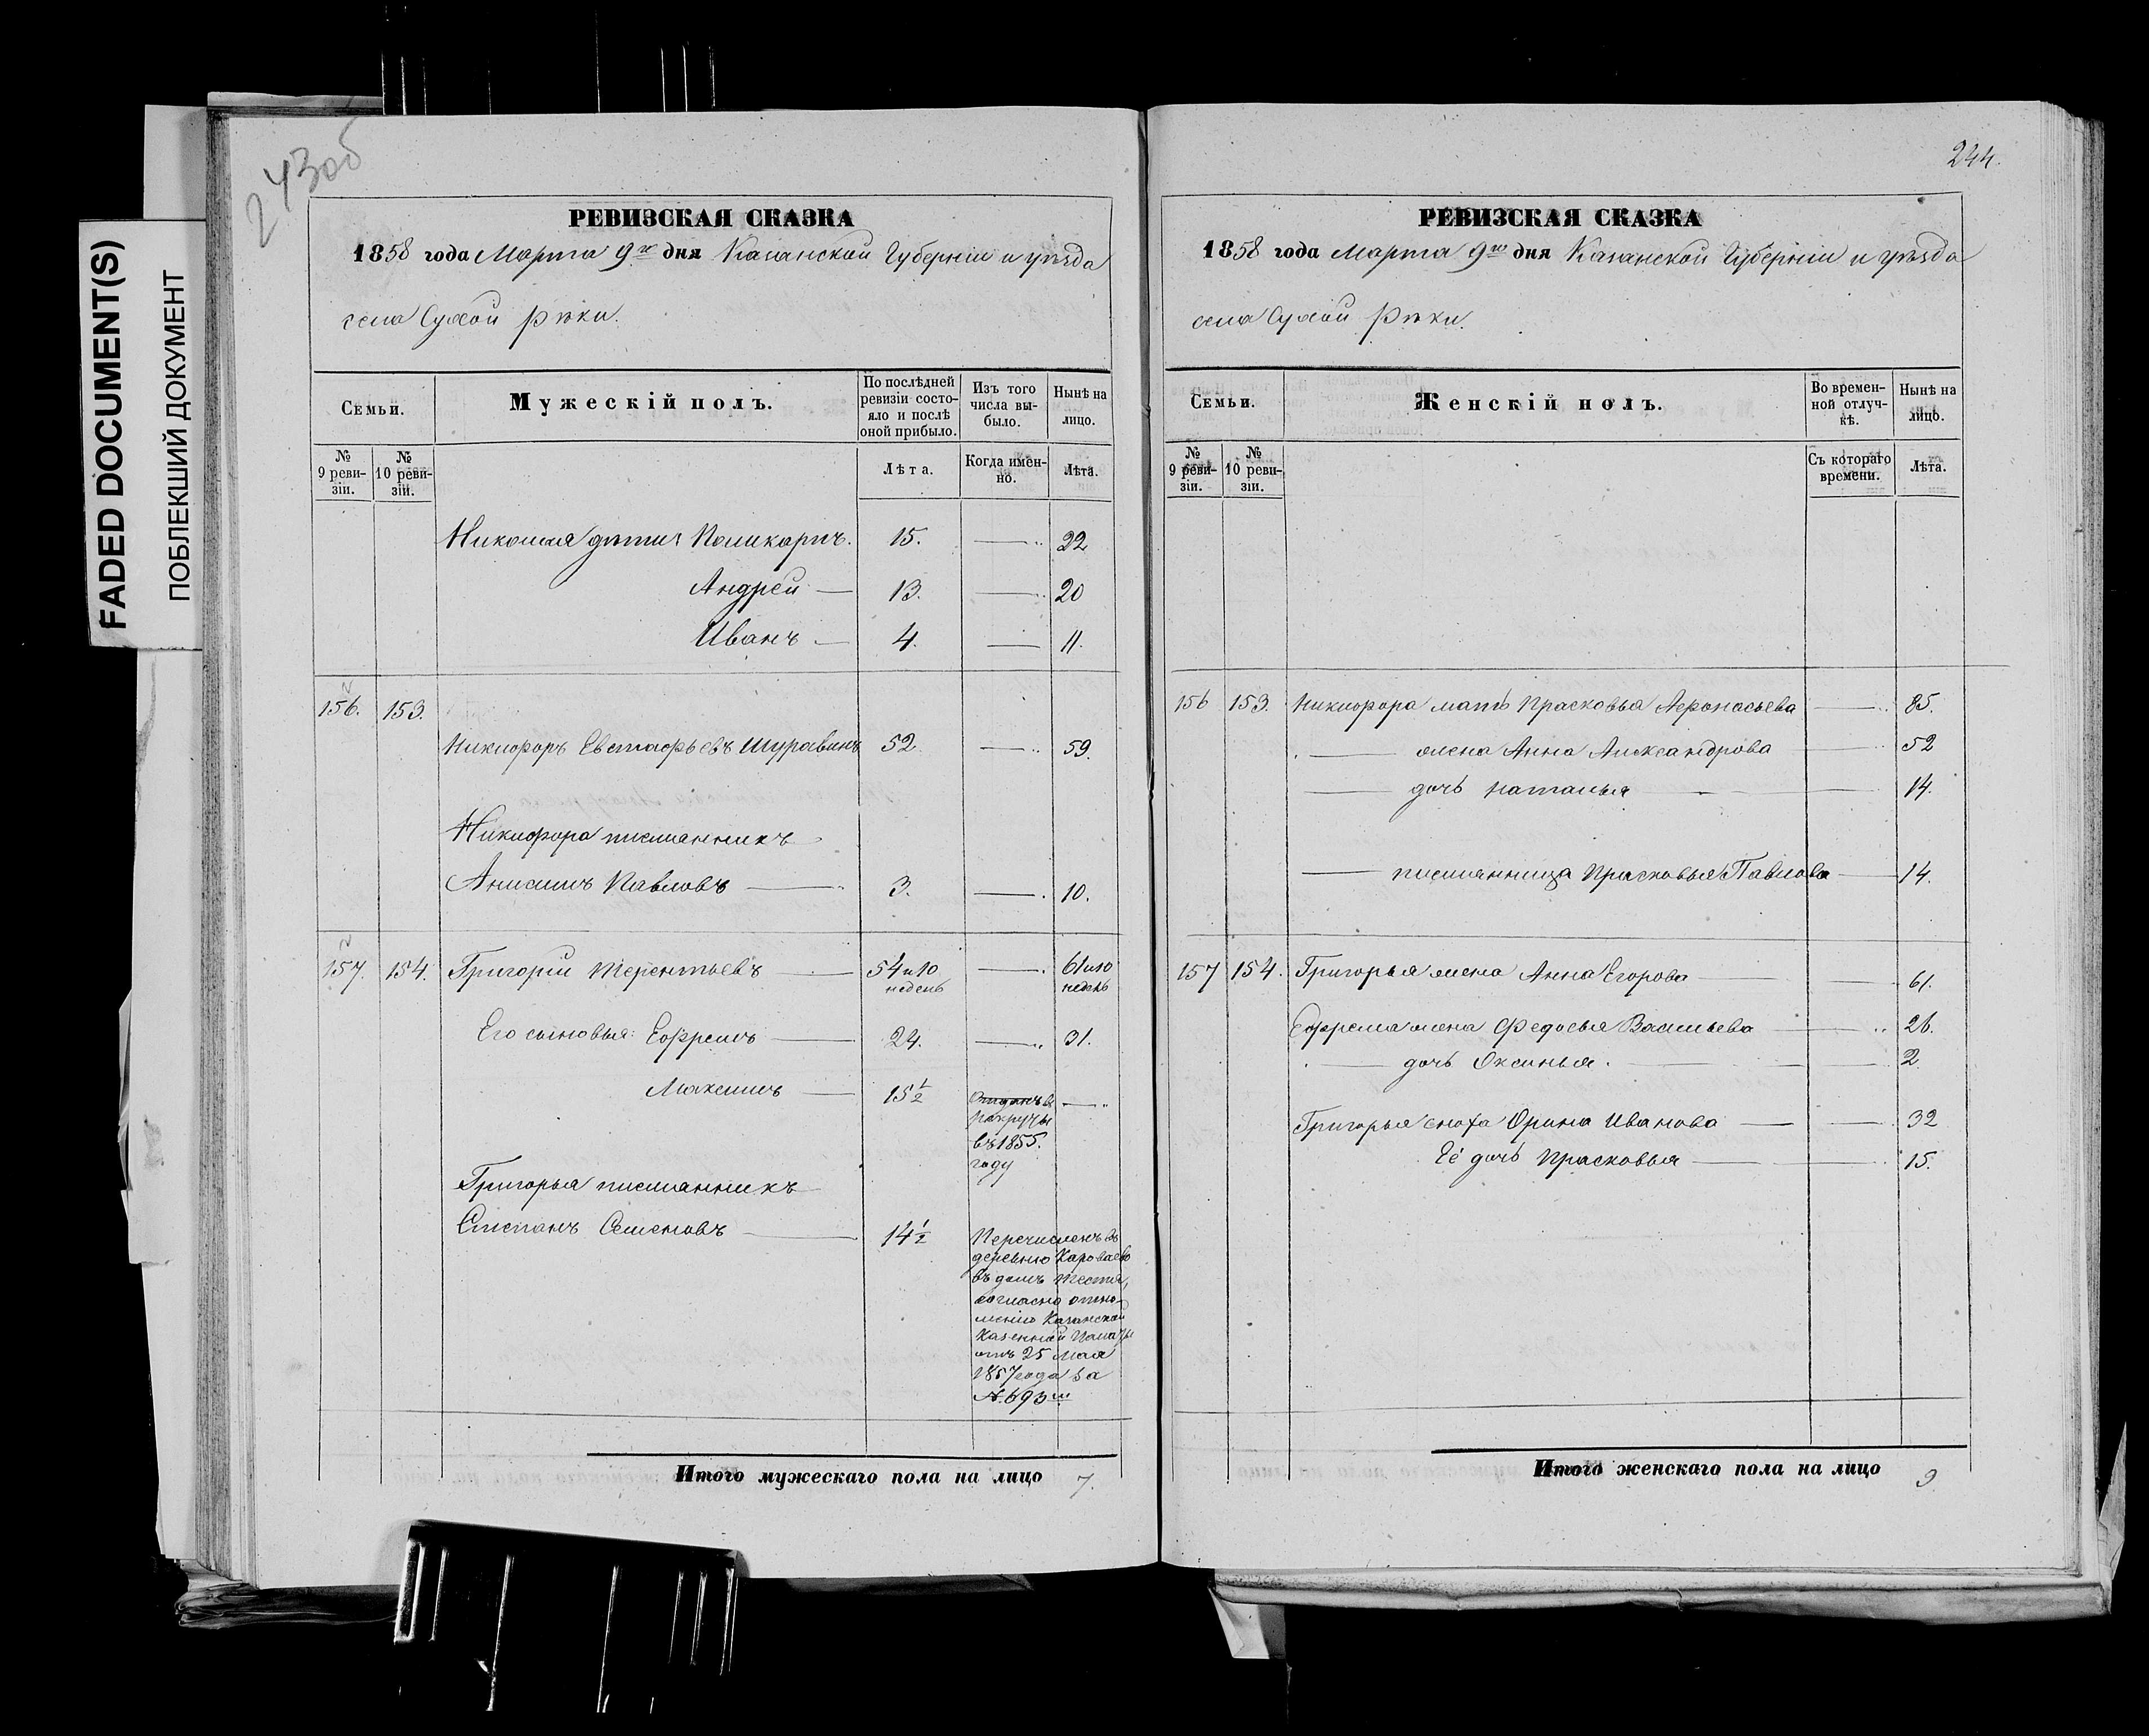 FADED DOCUMENT(S)
ПОБЛЕКШИЙ ДОКУМЕНТ
243об
РЕВИЗСКАЯ СКАЗКА
1858 года Марта 9го дня Казанской Губерніи и уѣзда
села Сухой рѣки.
Семьи.
Мужескій полъ.
По послѣдней ревизіи состояло и послѣ оной прибыло.
Изъ того числа выбыло.
Нынѣ на лицо.
№ 9 ревизіи.
№ 10 ревизіи.
Лѣта.
Когда именно.
Лѣта.
Николая дѣти: Поликарпъ. 15. — 22
Андрей — 13. — 20
Иванъ — 4. — 11.
156. 153.
Никифоръ Евстафьевъ Шуравинъ 52 — 59.
Никифора племянникъ
Анисимъ Павловъ — 3. — 10.
157. 154. Григорій Терентьевъ — 54 и 10 недель — 61 и 10 недель
Его сыновья: Ефремъ — 24. — 31.
Максимъ — 15½ Отданъ въ —
рекруты
въ 1855.
году
Григорья племянникъ
Степанъ Семеновъ — 14½ Перечисленъ въ
деревню Караваево
въ домъ тестя,
согласно отно-
шенію Казанской
Казенной Палаты
отъ 25 Мая
1857 года за
№ 693м
Итого мужескаго пола на лицо 7.
244.
РЕВИЗСКАЯ СКАЗКА
1858 года Марта 9го дня Казанской Губерніи и уѣзда
села Сухой рѣки.
Семьи.
Женскій полъ.
Во временной отлучкѣ.
Нынѣ на лицо.
№ 9 ревизіи.
№ 10 ревизіи.
Съ котораго времени.
Лѣта.
156 153. Никифора мать Прасковья Афонасьева — 85.
— жена Анна Александрова — 52
— дочь Наталья — 14.
— племянница Прасковья Павлова — 14.
157 154. Григорья жена Анна Егорова — 61.
Ефрема жена Федосья Васильева — 26.
— дочь Оксинья. — 2
Григорья сноха Орина Иванова — 32
Её дочь Прасковья — 15.
Итого женскаго пола на лицо 9